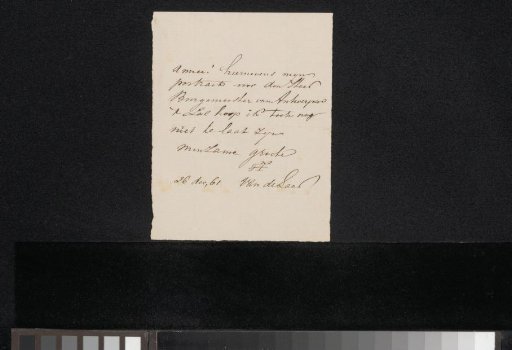 Amice! hiernevens mijn
portrait voor den Heer
Burgemeester van Antwerpen
Ik hoop toch nog
niet te laat zijn
Minzame groete
26 dec, 61 Van de